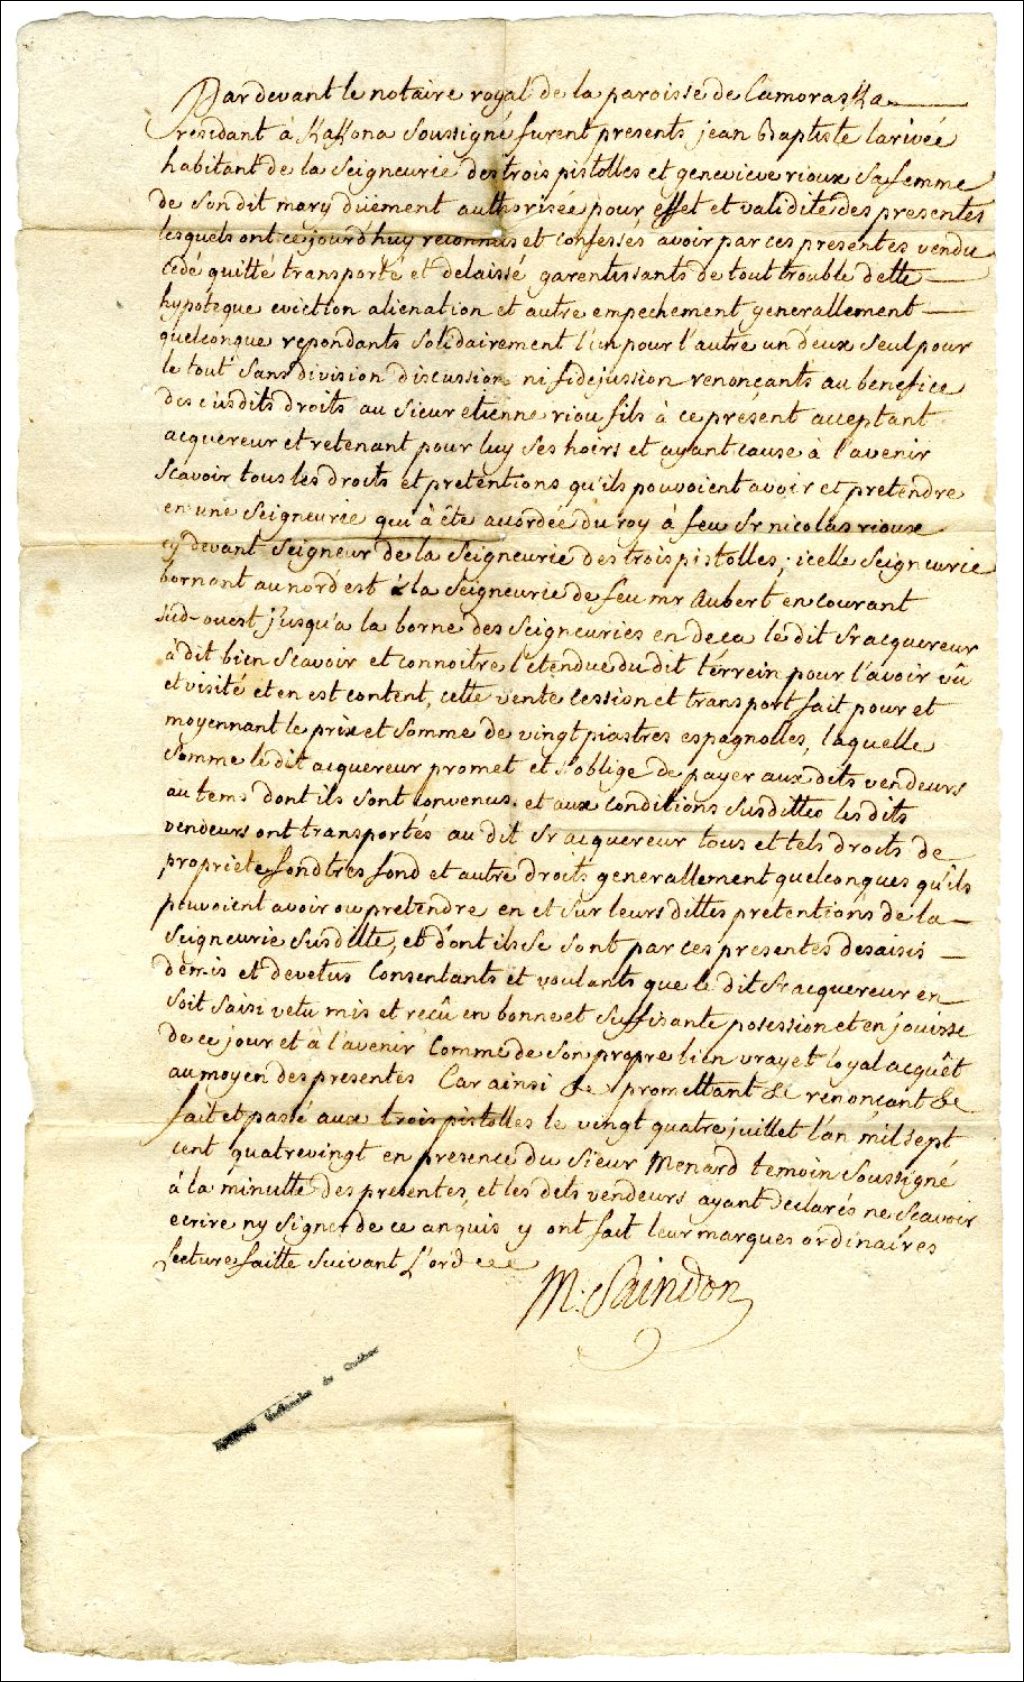 Pardevant le notaire royal de la paroisse de Camoraska
residant à Kakona soussigné furent presents jean Baptiste larivée
habitant de la seigneurie des trois pistolles et genevieve rioux sa femme
de son dit mary düement authorisée pour effet et validité des presentes
lesquels ont cejourd'huy reconnus et confessés avoir par ces presentes vendu
cedé quitté transporté et delaissé garentissants de tout trouble dette
hypoteque eviction alienation et autre empechement generallement
quelconque repondants solidairement l'un pour l'autre un d'eux seul pour
le tout sans division discussion ni fidejussion renonçants au benefice
des susdits droits au sieur etienne riou fils à ce present acceptant
acquereur et retenant pour luy ses hoirs et ayant cause à l'avenir
scavoir tous les droits et pretentions qu'ils pouvoient avoir et pretendre
en une seigneurie qui à été accordée du roy à feu sr nicolas rioux
cy devant seigneur de la seigneurie des trois pistolles; icelle seigneurie
bornant au nord est à la seigneurie de feu mr Aubert en courant
sud-ouest jusqu'a la borne des seigneuries en deca le dit sr acquereur
à dit bien scavoir et connoitre l'étendue du dit terrein pour l'avoir vû
et visité et en est content, cette vente cession et transport fait pour et
moyennant le prix et somme de vingt piastres espagnolles, laquelle
somme le dit acquereur promet et s'oblige de payer aux dits vendeurs
au tems dont ils sont convenus. et aux conditions susdittes les dits
vendeurs ont transportés au dit sr acquereur tous et tels droits de
proprieté fond tres fond et autre droits generallement quelconques qu'ils
pouvoient avoir ou pretendre en et sur leurs dittes pretentions de la
seigneurie susditte, et dont ils se sont par ces presentes desaisis
demis et devetus Consentants et voulants que le dit sr acquereur en
soit saisi vetu mis et recû en bonne et suffisante posession et en jouisse
de ce jour et à l'avenir Comme de son propre bien vray et loyal acquêt
au moyen des presentes Car ainsi &c promettant &c renonçant &c
fait et passé aux trois pistolles le vingt quatre juillet l'an mil sept
cent quatrevingt en presence du sieur Menard temoin soussigné
à la minutte des presentes, et les dits vendeurs ayant declarés ne scavoir
ecrire ny signer de ce anquis y ont fait leur marques ordinaires
lecture faitte suivant l'ord
M: Saindon